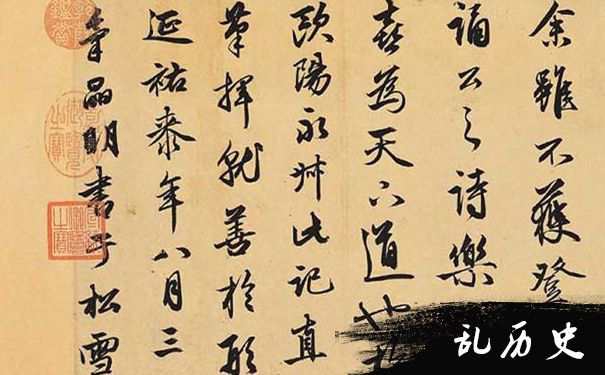 余雖不獲登
誦公之詩樂
喜為天下道也
歐陽永叔此記直
筆揮就善於形
延祐泰年八月三
晶明書于松雪
乱历史